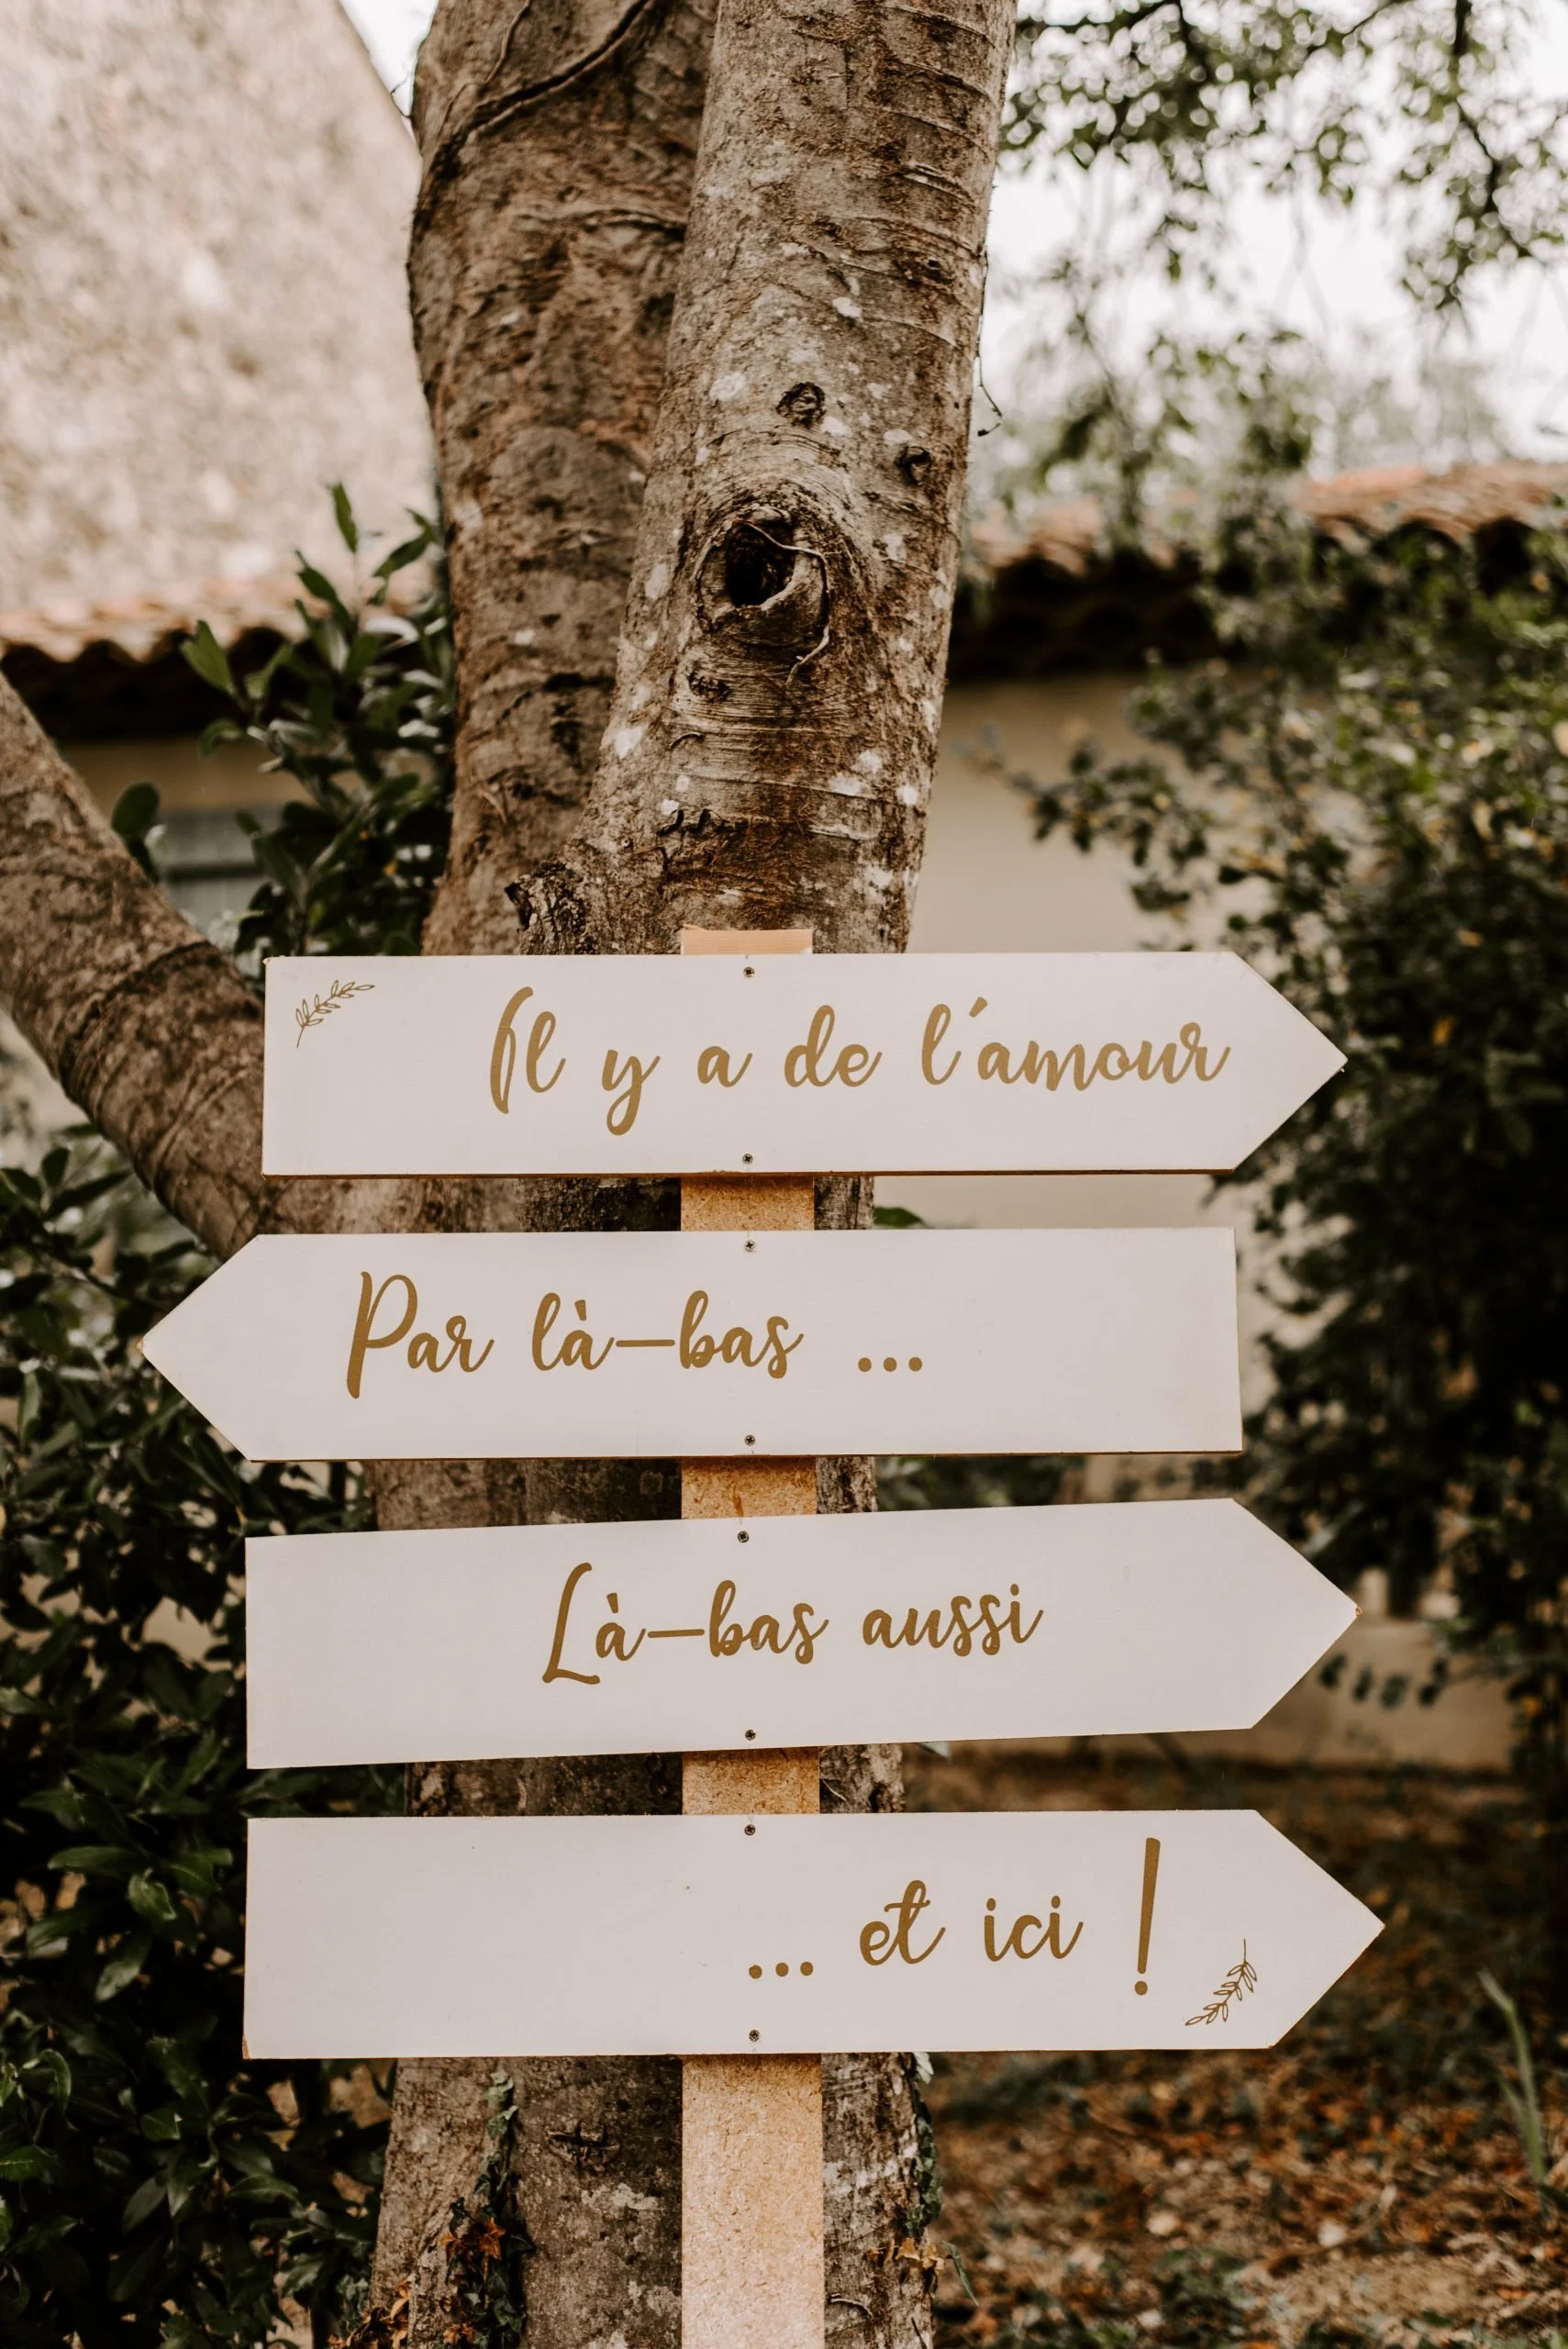 Il y a de l'amour
Par là-bas ...
Là-bas aussi
... et ici !